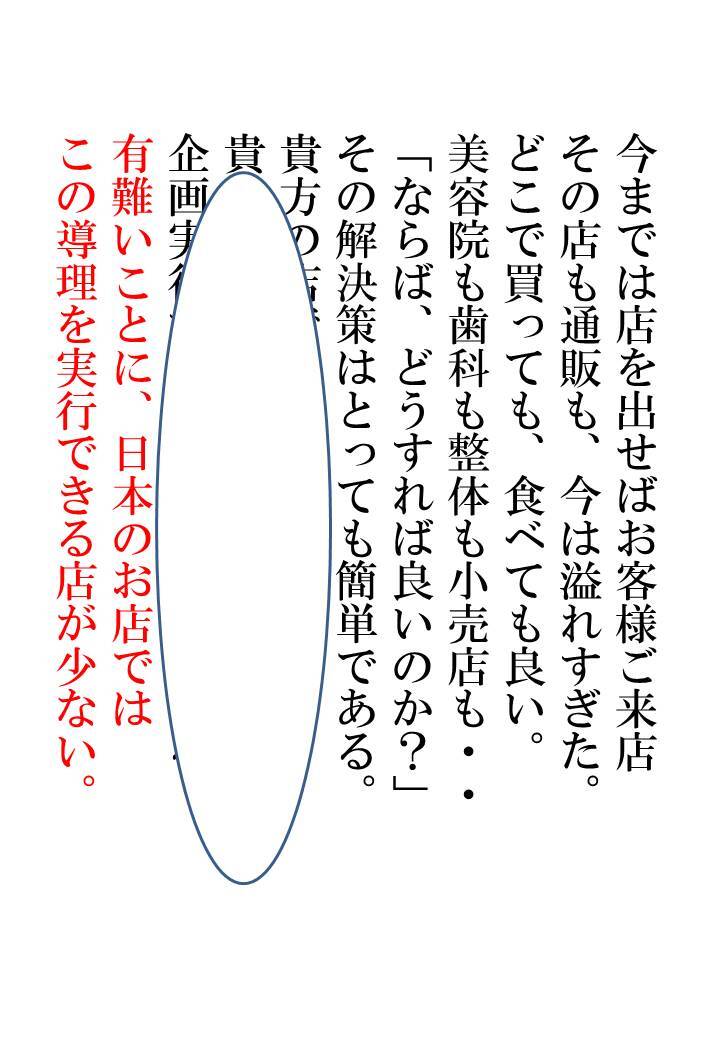 今までは店を出せばお客様ご来店
その店も通販も、今は溢れすぎた。
どこで買っても、食べても良い。
美容院も歯科も整体も小売店も・・
「ならば、どうすれば良いのか？」
その解決策はとっても簡単である。
貴方の店
貴
企画実行
有難いことに、日本のお店では
この導理を実行できる店が少ない。